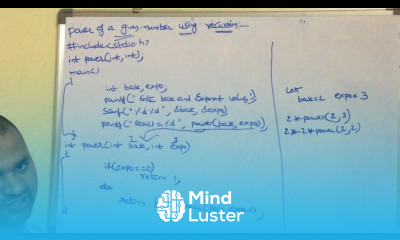 power of a given number using recursion:-
#include<stdio.h>
int power(int, int);
main()
{
int base, expo;
printf(" Enter base and Exponent values");
scanf(" %d %d", &base, &expo);
printf(" Result = %d", power(base, expo));
}
2 3
int power(int base, int expo)
{
if(expo==0)
return 1;
else
return
}
Let
base=2 expo=3
2*power(2,3)
2*2*power(2,2)
Mind
Luster